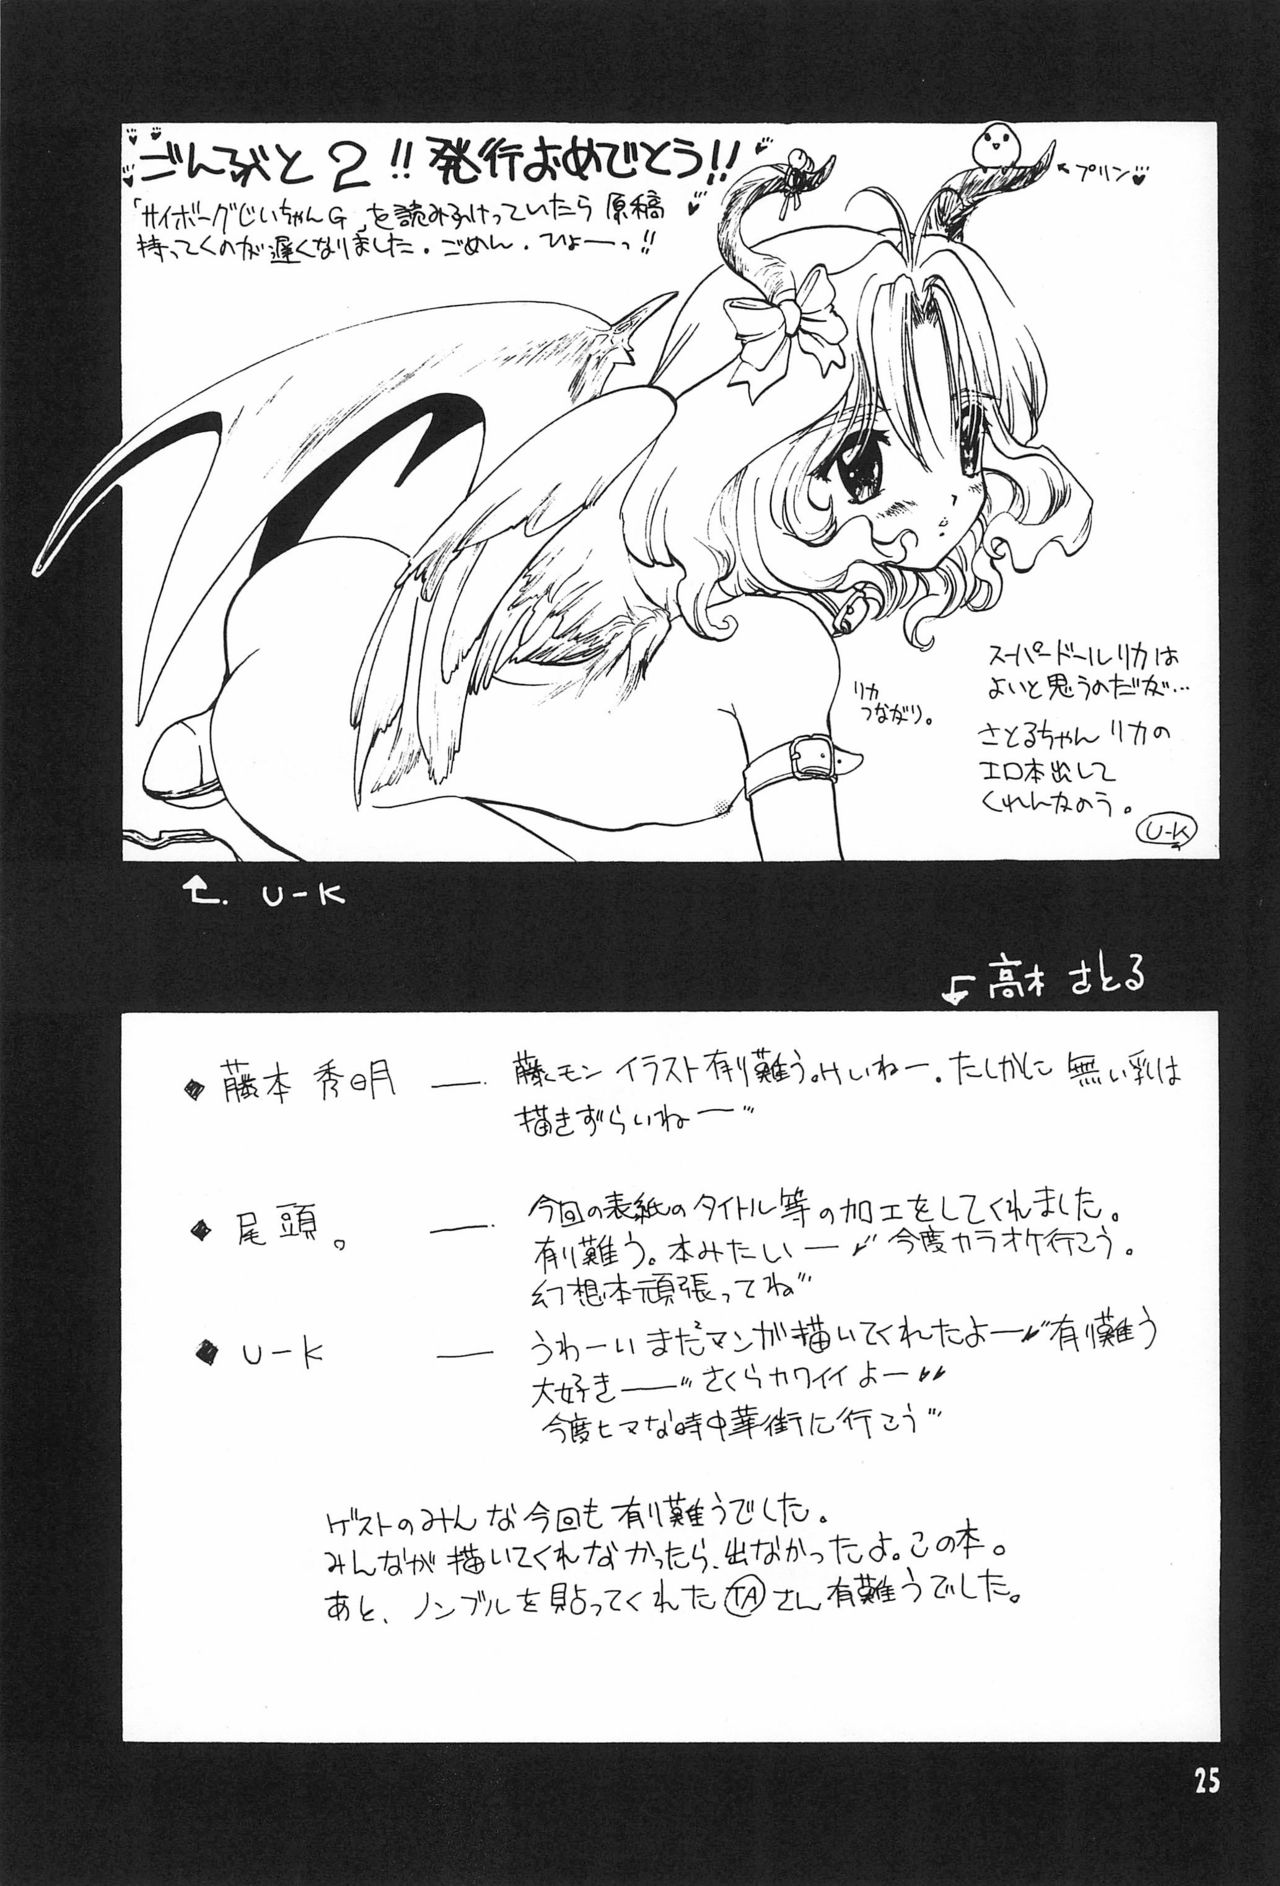 ごんぶと2!!発行おめでとう!!
「サイボーグじいちゃんG」を読みふけっていたら原稿
持ってくのが遅くなりました。ごめん。ひょーっ!!
←プリン
リカ
つながり。
スーパードールリカは
よいと思うのだが…
さとるちゃんリカの
エロ本出して
くれんかのう。
U-K
U-K
高木さとる
◆藤本秀明 ― 藤モンイラスト有難う。けいねー。たしかに無い乳は
描きずらいねー
◆尾頭。 ― 今回の表紙のタイトル等の加工をしてくれました。
有難う。本みたいー 今度カラオケ行こう。
幻想本頑張ってね
◆U-K ― うわーいまたマンガ描いてくれたよー有難う
大好きー さくらカワイイよー
今度ヒマな時中華街に行こう
ゲストのみんな今回も有難うでした。
みんなが描いてくれなかったら、出なかったよ。この本。
あと、ノンブルを貼ってくれたTAさん有難うでした。
25